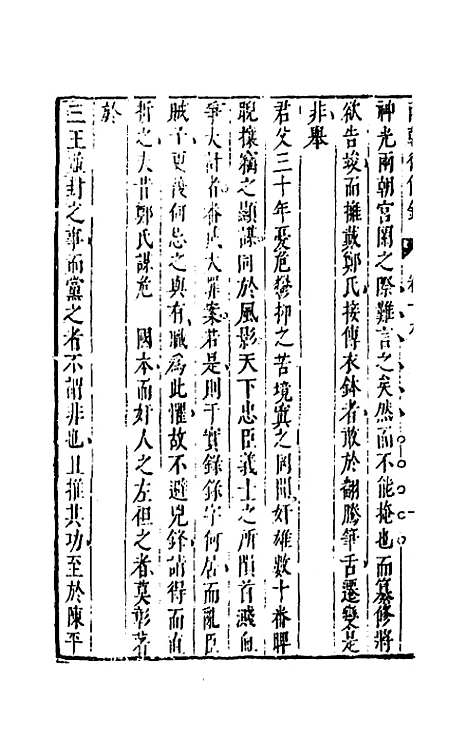 神光兩朝宮闈之際難言之矣然而不能掩也而纂修將
欲告竣而擁戴鄭氏接傳衣鉢者敢於翻騰筆舌遷變是
非舉
君父三十年憂危鬱抑之苦境寘之罔聞奸雄數十番睥
睨攘竊之顯謀同於風影天下忠臣義士之所隕首濺血
爭大計者番成大罪案若是則于實錄錄字何居而亂臣
賊子更復何忌之與有職為此懼故不避兇鋒請得而直
折之夫昔鄭氏謀危 國本而奸人之左袒之者莫彰著
於
三王並封之事而黨之者不謂非也且推其功至於陳平